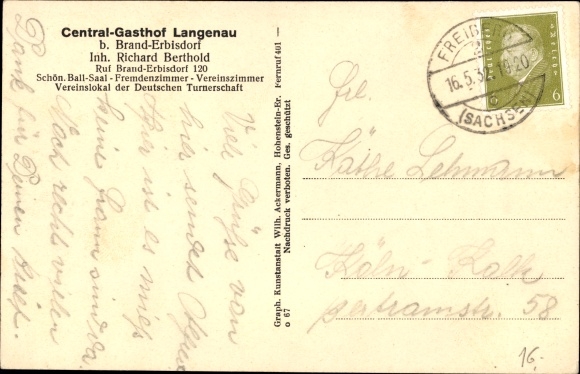 Central-Gasthof Langenau
b. Brand-Erbisdorf
Inh. Richard Berthold
Ruf Brand-Erbisdorf 120
Schön. Ball-Saal - Fremdenzimmer - Vereinszimmer
Vereinslokal der Deutschen Turnerschaft
Viele Grüße von
hier sendet
Hier ist es
keine
Noch recht vielen
Dank für Deinen Brief.
Graph. Kunstanstalt Wilh. Ackermann, Hohenstein-Er. Fernruf 401 —
Nachdruck verboten. Ges. geschützt
o 67
FREIBERG
16.5.32
(SACHSEN)
Deutsches Reich
6 6
Frl.
Käthe Lehmann
Köln-Kalk
58
16.-